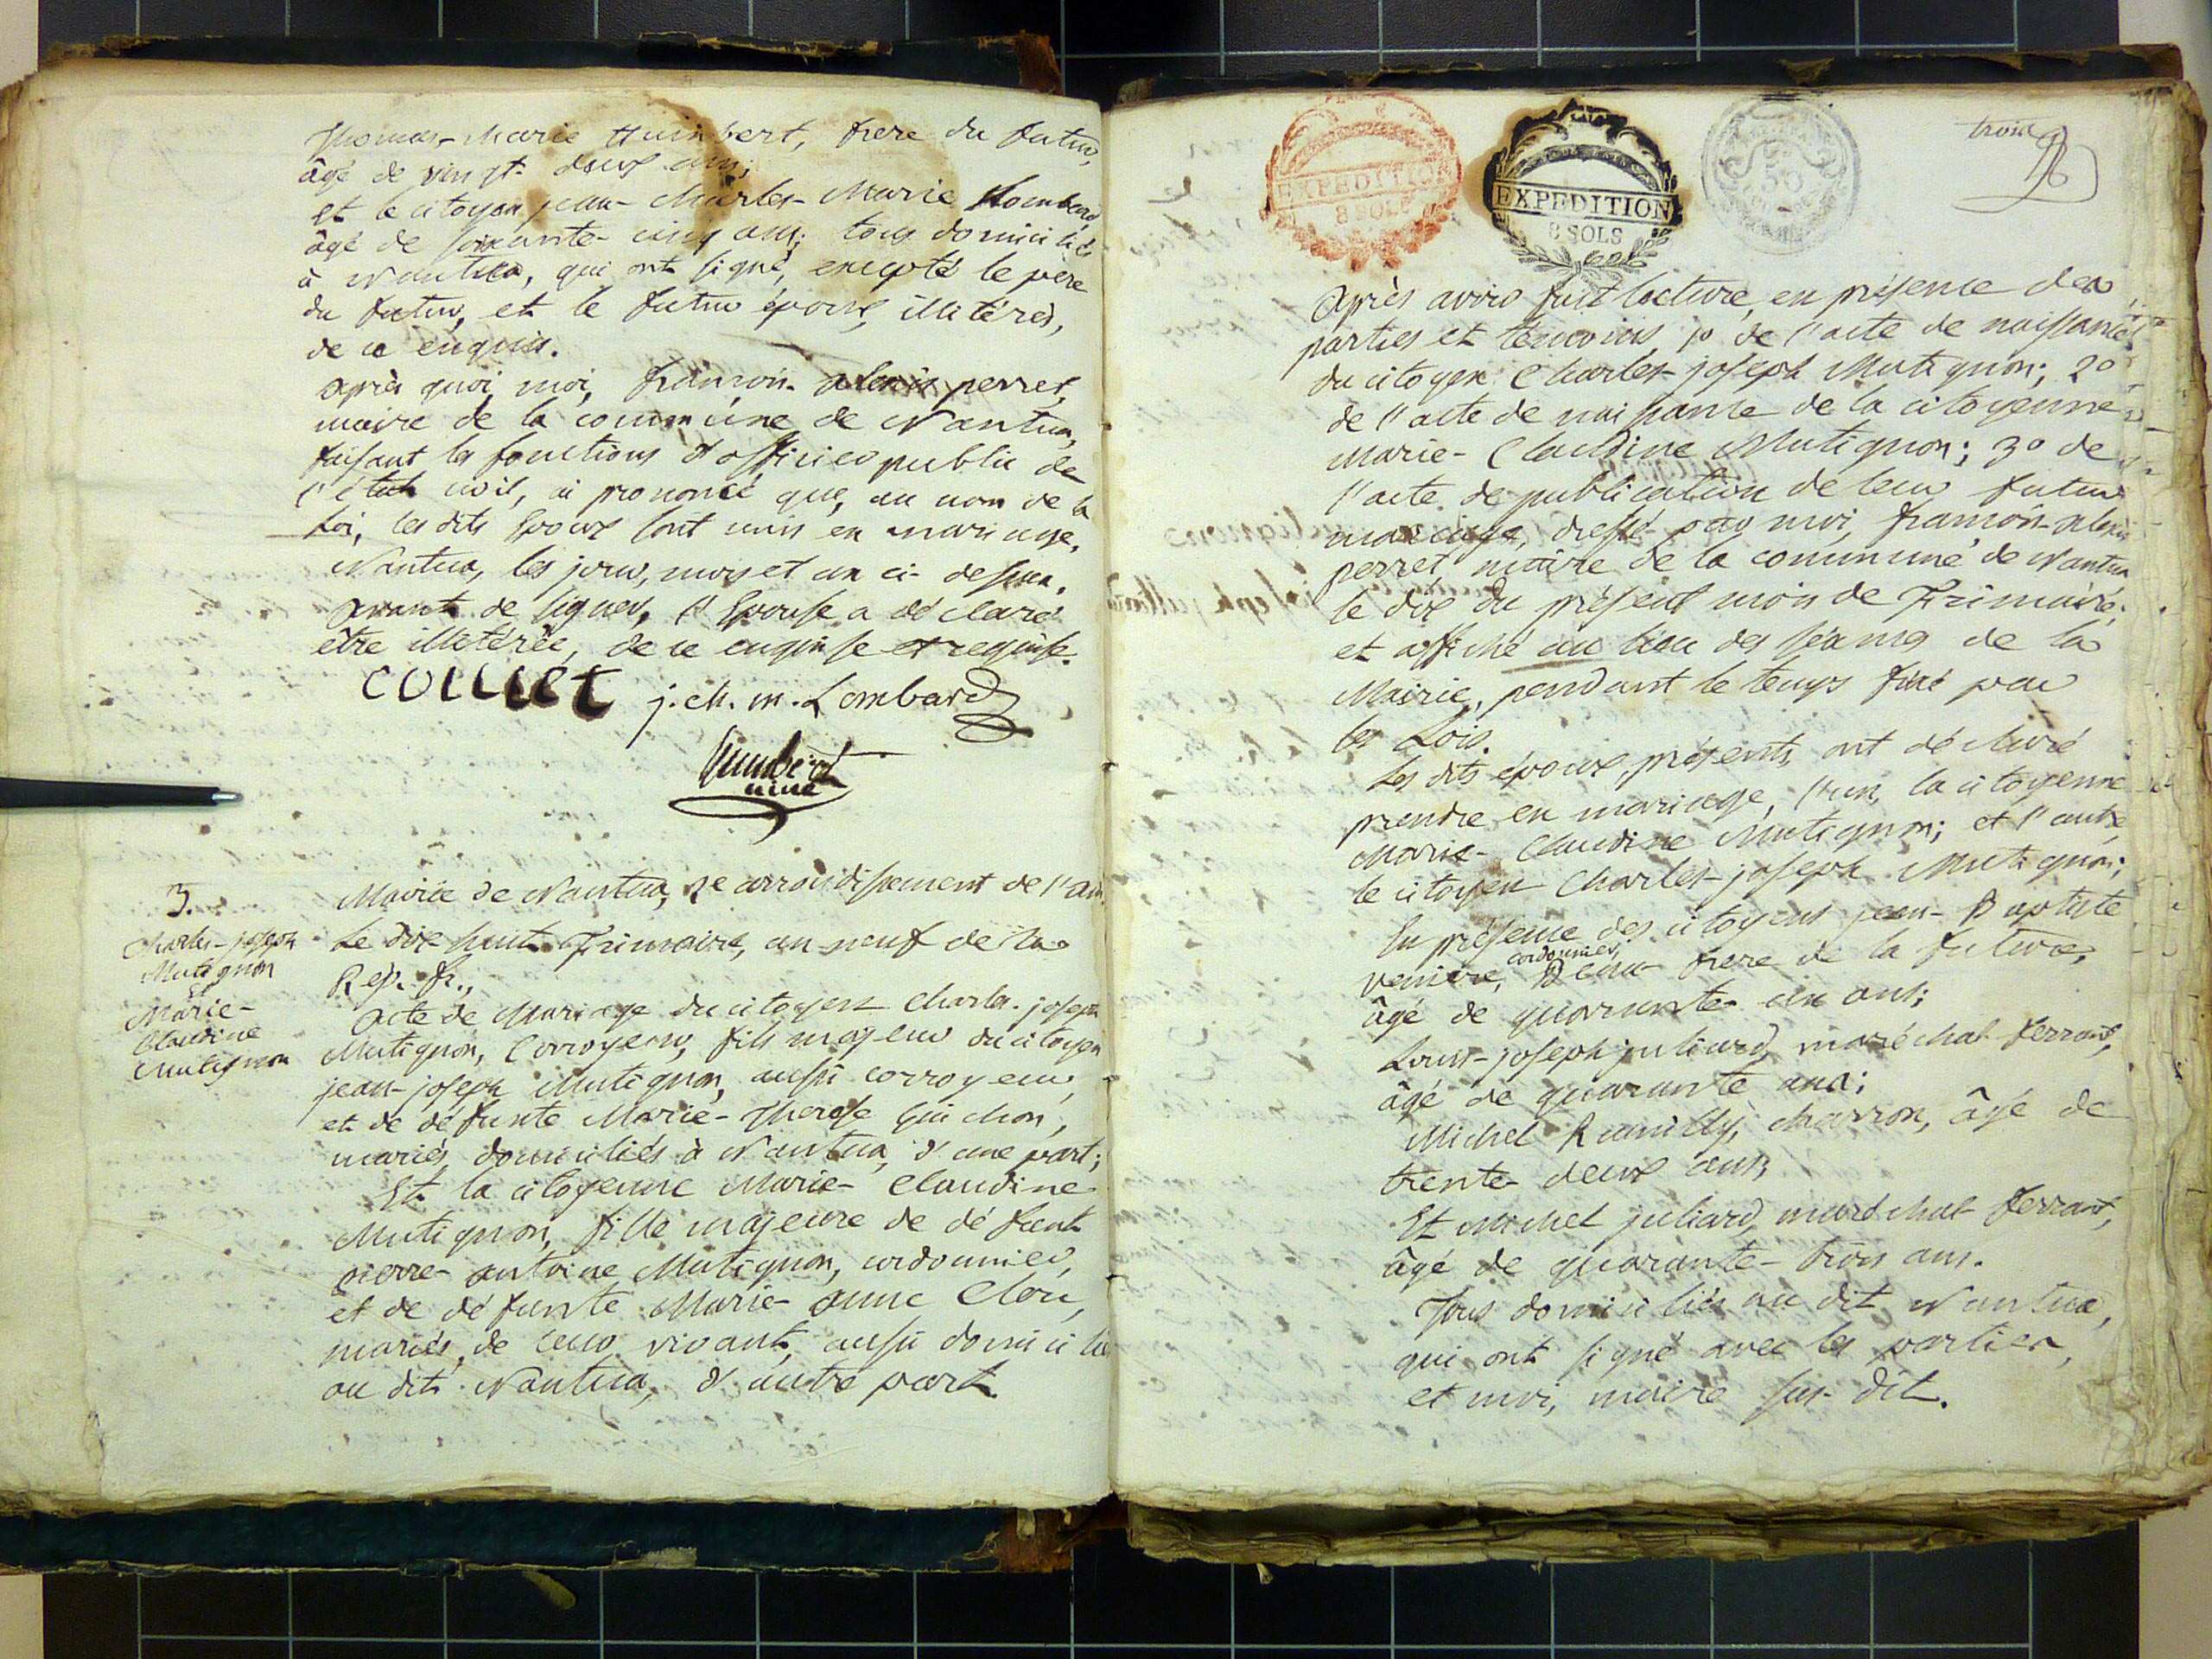 Thomas-Marie Humbert, frere du futur,
âgé de vingt-deux ans;
et le citoyen jean-charles-Marie Lombard
âgé de soixante-cinq ans; tous domiciliés
à Nantua, qui ont signé, excepté le pere
du futur, et le futur époux, illitérés,
de ce enquis.
après quoi, moi, françois-alexis perret,
maire de la commune de Nantua,
faisant les fonctions d'officier public de
l'état civil, ai prononcé que, au nom de la
Loi, les dits Epoux sont unis en mariage.
Nantua, les jour, mois et an ci-dessus.
avant de signer, l'Epouse a déclaré
être illitérée, de ce enquise et requise.
colliet j. ch. m. Lombard
humbert
3.
Charles-joseph
Mutignon
Et
Marie-
Claudine
Mutignon
Mairie de Nantua, 2e arrondissement de l'ain.
Le dix huit Frimaire, an neuf de la
Rép. fr.,
acte de Mariage du citoyen Charles-joseph
Mutignon, Corroyeur, fils majeur du citoyen
jean-joseph Mutignon, aussi corroyeur,
et de défunte Marie-Therese Guichon,
mariés, domiciliés à Nantua, d'une part;
Et la citoyenne Marie-Claudine
Mutignon, fille majeure de défunt
pierre-antoine Mutignon, cordonnier,
et de défunte Marie-anne Cloii,
mariés, de leur vivant, aussi domiciliés
au dit Nantua, d'autre part.
EXPEDITION
8 SOLS
EXPEDITION
8 SOLS
50
trois
après avoir fait lecture, en présence des
parties et témoins, 1o de l'acte de naissance
du citoyen Charles-joseph Mutignon; 2o
de l'acte de naissance de la citoyenne
Marie-Claudine Mutignon; 3o de
l'acte de publication de leur futur
mariage, dressé par moi, françois-alexis
perret, maire de la commune de Nantua
le dix du présent mois de Frimaire,
et affiché au lieu des séances de la
Mairie, pendant le temps fixé par
les Lois.
Les dits époux, présents, ont déclaré
prendre en mariage, l'un, la citoyenne
Marie-Claudine Mutignon; et l'autre,
le citoyen Charles-joseph Mutignon;
En présence des citoyens jean-Baptiste
cordonnier,
Beau-frere de la future,
âgé de quarante-un ans;
Louis-joseph juliard, maréchal-ferrant,
âgé de quarante ans;
Michel Rumilly, charron, âgé de
trente-deux ans;
Et Michel juliard, maréchal-ferrant,
âgé de quarante-trois ans.
Tous domiciliés au dit Nantua,
qui ont signé avec les parties,
et moi, maire sus-dit.